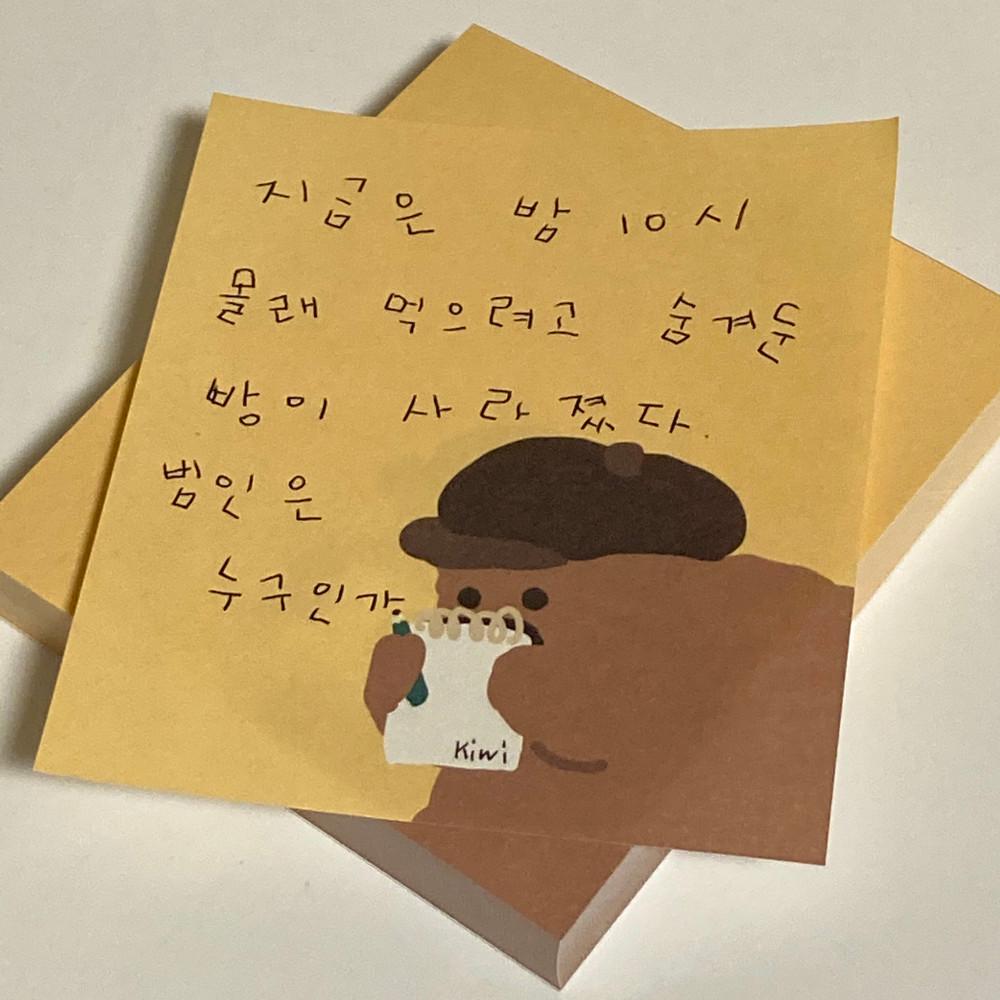 지금은 밤 10시
몰래 먹으려고 숨겨둔
빵이 사라졌다.
범인은
누구인가
Kiwi